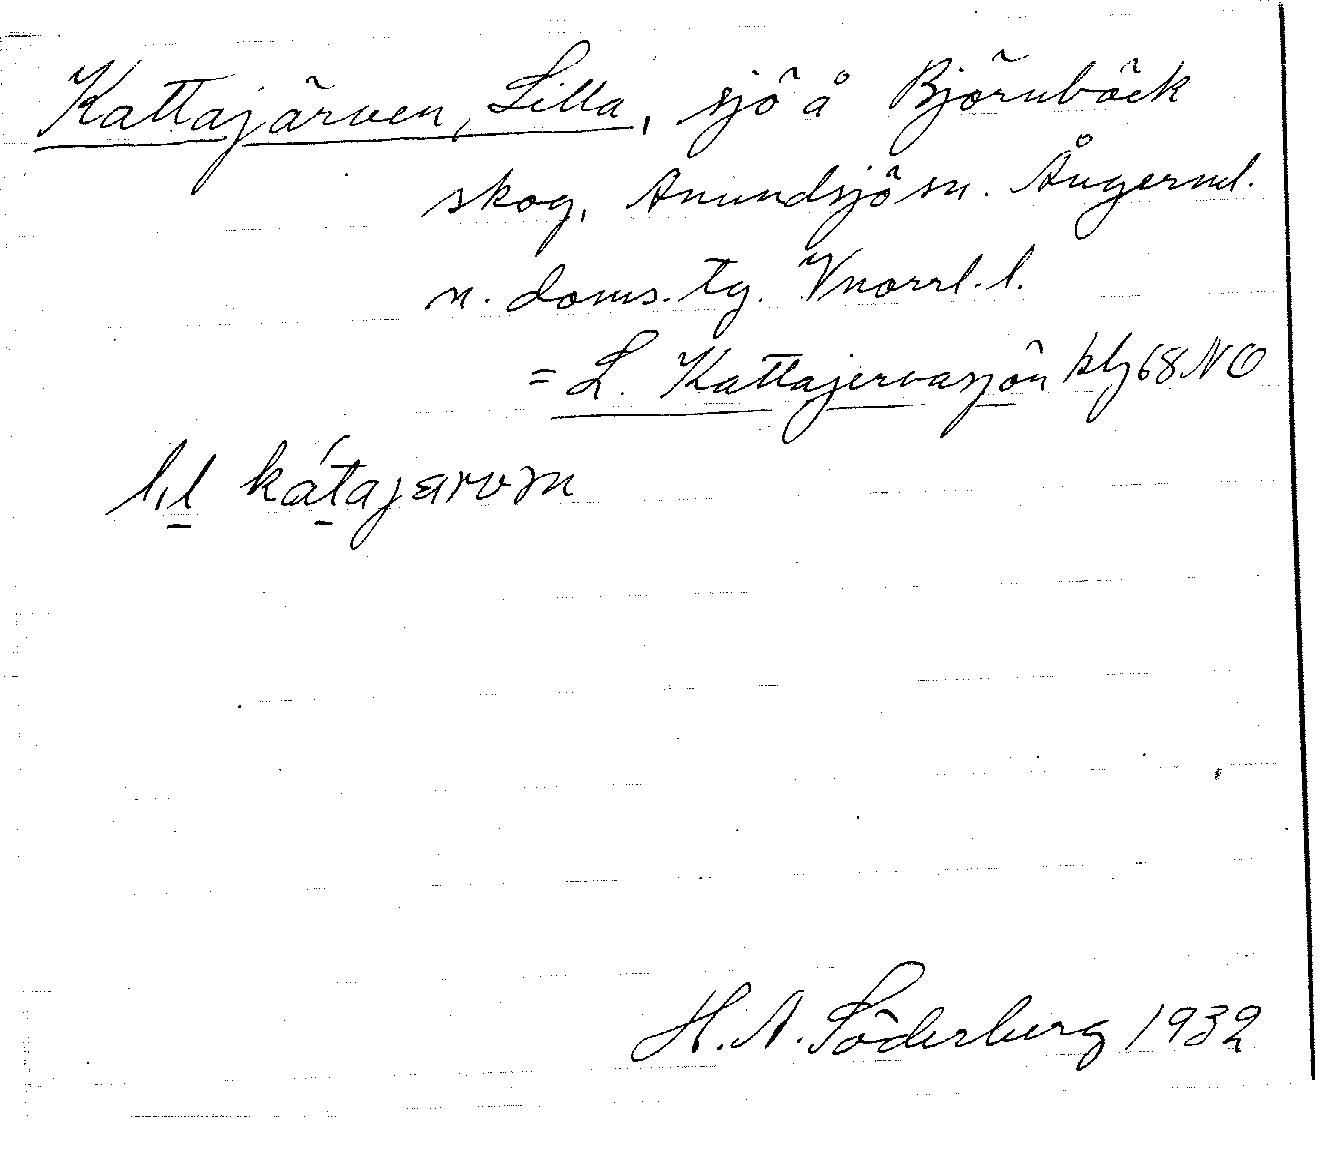 Kattajärven, Lilla, sjö å Björnbäck
skog, Anundsjö sn. Ångerml.
n. doms. tg. Vnorrl. l.
= L. Kattajervasjön klj 68 NO
l,l kátajarvən
H. A. Söderberg 1932